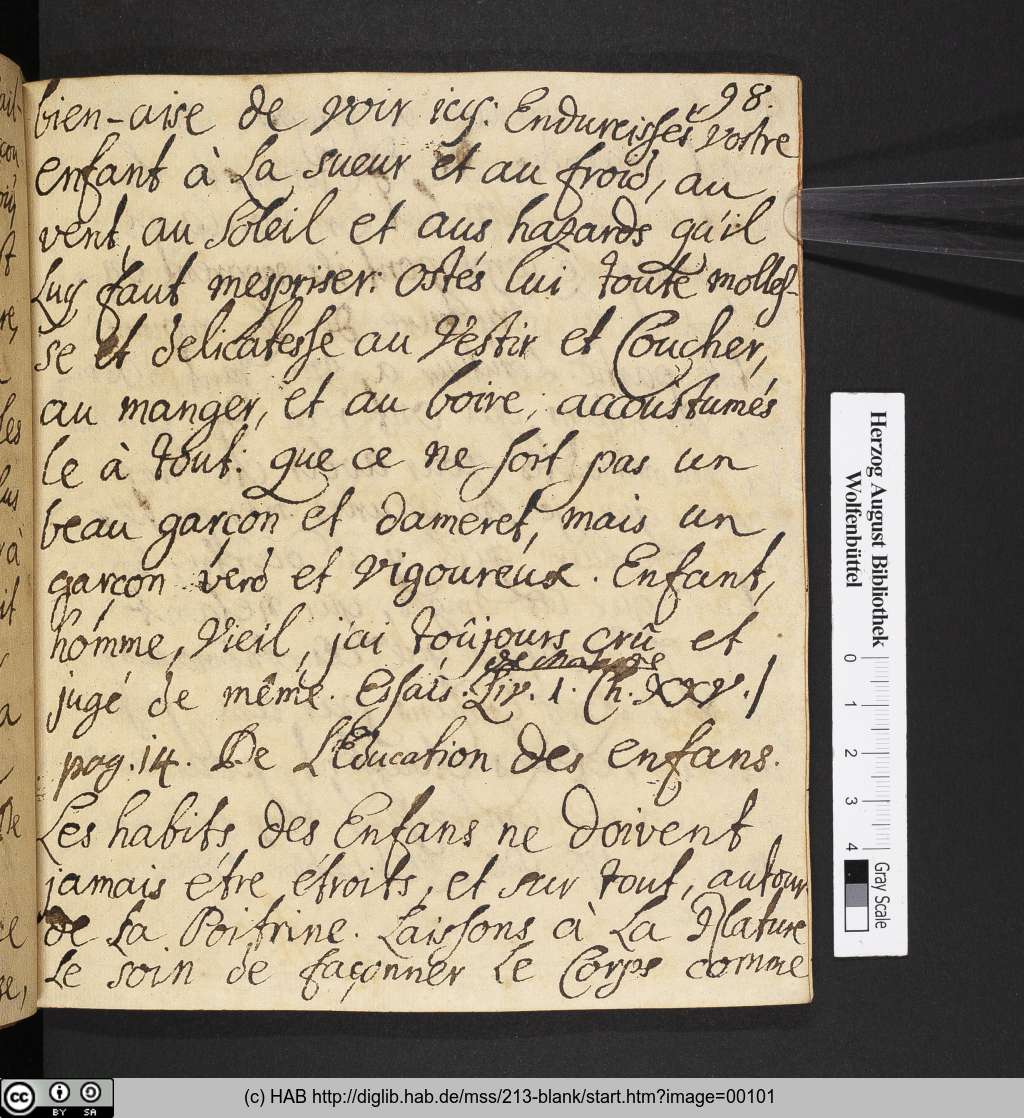 98.
bien-aise de voir icy: Endurcisses vostre
enfant à La sueur et au froid, au
vent, au Soleil et aus hazards qu'il
Luy faut mespriser: Ostés lui toute molles-
se et delicatesse au Vestir et Coucher,
au manger, et au boire, accoustumés
le à tout: que ce ne soit pas un
beau garçon et dameret, mais un
garçon verd et vigoureux. Enfant,
homme, Vieil, j'ai toûjours crû et
jugé de même. Essais. Liv. 1. Ch. XXV. /
pag. 14. De L'Education des enfans.
Les habits des Enfans ne doivent
jamais étre étroits, et sur tout, autour
de La Poitrine. Laissons à La Nature
Le soin de façonner Le Corps comme
Herzog August Bibliothek
Wolfenbüttel
0 1 2 3 4
Gray Scale
cc BY SA
(c) HAB http://diglib.hab.de/mss/213-blank/start.htm?image=00101